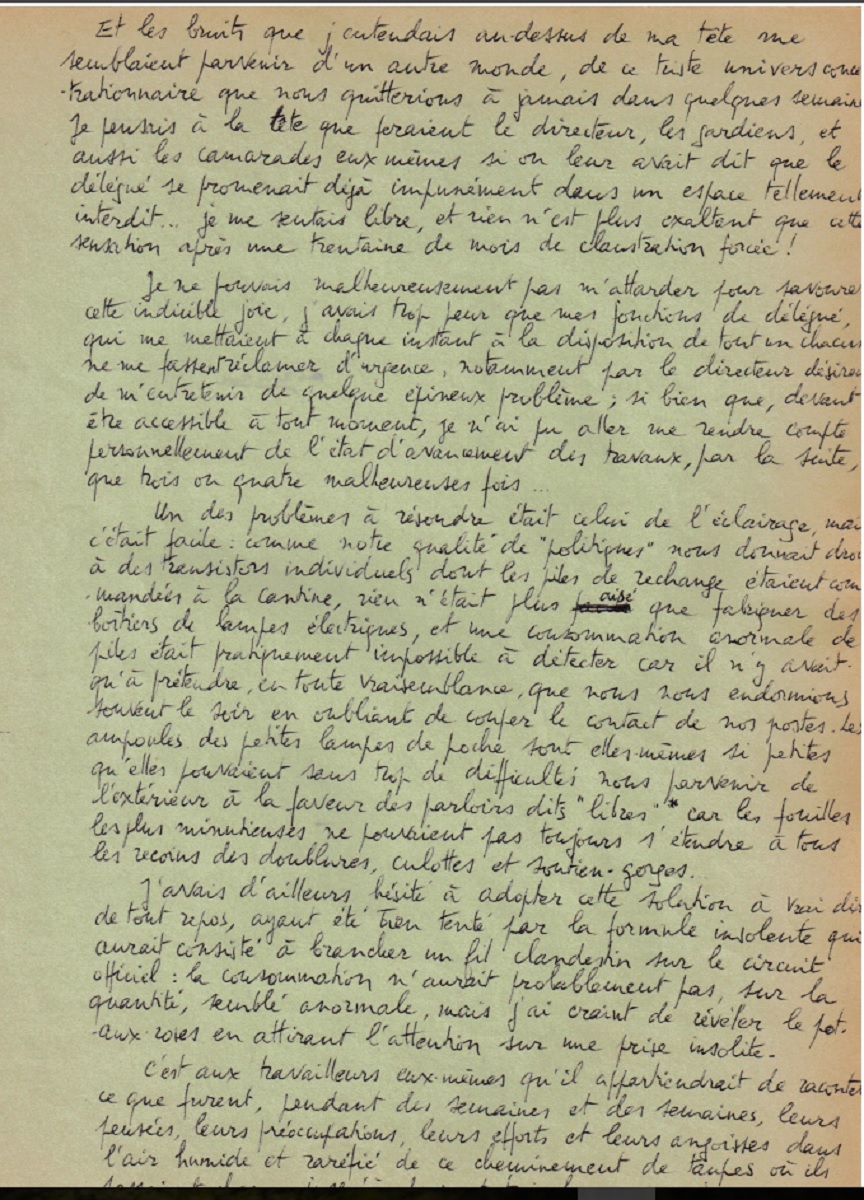 Et les bruits que j'entendais au-dessus de ma tête me
semblaient parvenir d'un autre monde, de ce triste univers conce
-trationnaire que nous quitterions à jamais dans quelques semain
Je pensais à la tête que feraient le directeur, les gardiens, et
aussi les camarades eux-mêmes si on leur avait dit que le
délégué se promenait déjà impunément dans un espace tellement
interdit... je me sentais libre, et rien n'est plus exaltant que cett
sensation après une trentaine de mois de claustration forcée !
Je ne pouvais malheureusement pas m'attarder pour savoure
cette indicible joie, j'avais trop peur que mes fonctions de délégué,
qui me mettaient à chaque instant à la disposition de tout un chacun
ne me fassent réclamer d'urgence, notamment par le directeur désireu
de m'entretenir de quelque épineux problème ; si bien que, devant
être accessible à tout moment, je n'ai pu aller me rendre compte
personnellement de l'état d'avancement des travaux, par la suite,
que trois ou quatre malheureuses fois...
Un des problèmes à résoudre était celui de l'éclairage, mai
c'était facile : comme notre qualité de "politiques" nous donnait droi
à des transistors individuels dont les piles de rechange étaient com
-mandées à la cantine, rien n'était plus aisé que fabriquer des
boîtiers de lampes électriques, et une consommation anormale de
piles était pratiquement impossible à détecter car il n'y avait
qu'à prétendre, en toute vraisemblance, que nous nous endormions
souvent le soir en oubliant de couper le contact de nos postes. Les
ampoules des petites lampes de poche sont elles-mêmes si petites
qu'elles pouvaient sans trop de difficultés nous parvenir de
l'extérieur à la faveur des parloirs dits "libres" * car les fouilles
les plus minutieuses ne pouvaient pas toujours s'étendre à tous
les recoins des doublures, culottes et soutien-gorges.
J'avais d'ailleurs hésité à adopter cette solution à vrai dir
de tout repos, ayant été bien tenté par la formule insolente qui
aurait consisté à brancher un fil clandestin sur le circuit
officiel : la consommation n'aurait probablement pas, sur la
quantité, semblé anormale, mais j'ai craint de révéler le pot-
-aux-roses en attirant l'attention sur une prise insolite.
C'est aux travailleurs eux-mêmes qu'il appartiendrait de raconter
ce que furent, pendant des semaines et des semaines, leurs
pensées, leurs préoccupations, leurs efforts et leurs angoisses dans
l'air humide et raréfié de ce cheminement de taupes où ils